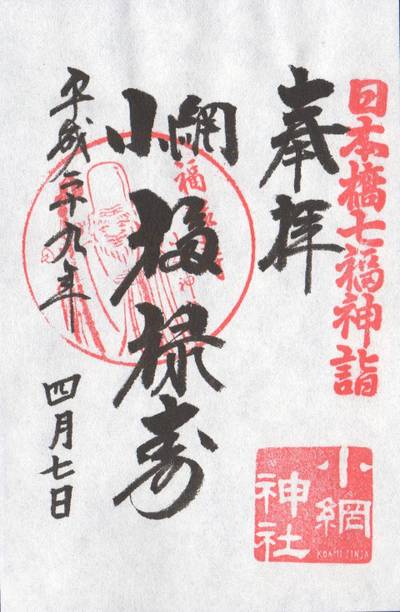 日本橋七福神詣
奉拝
小網
福禄寿
平成二十九年
四月七日
小網
神社
KOAMI JINJA